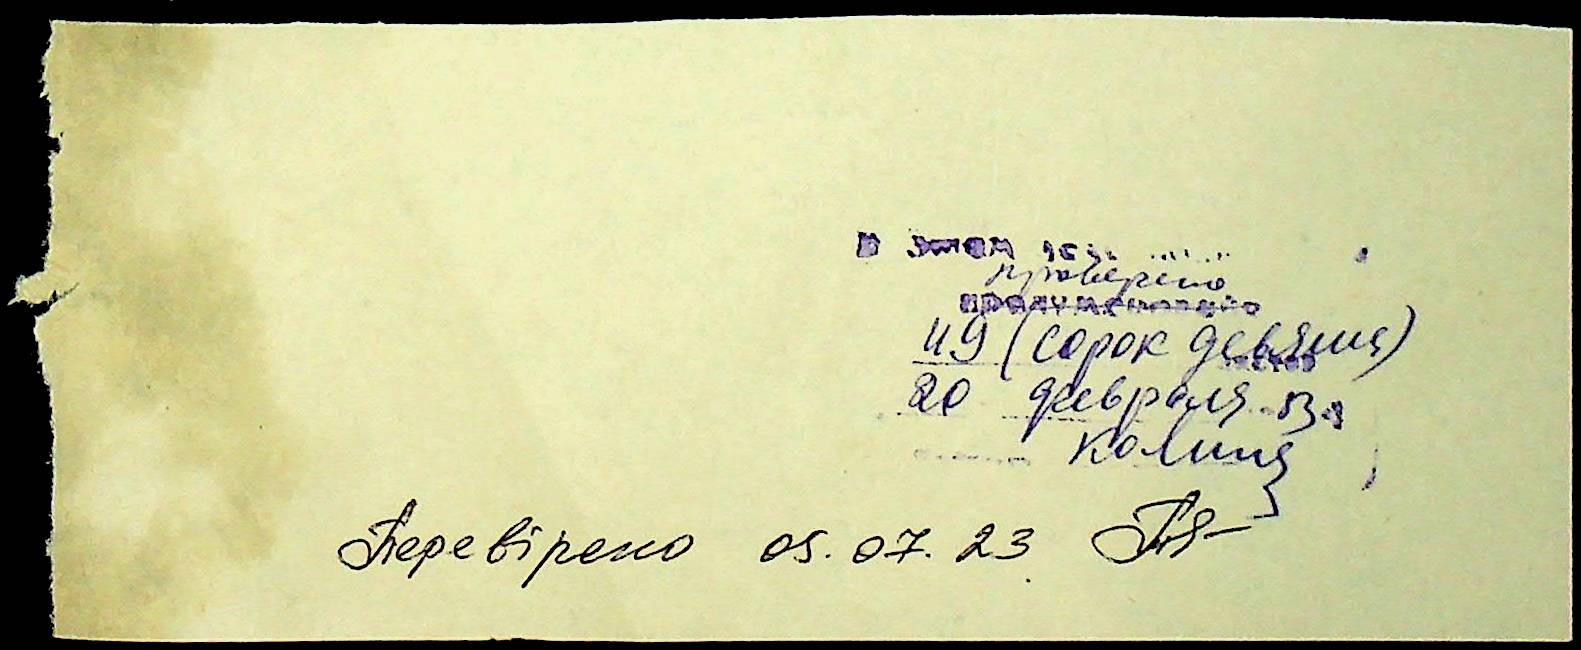 В этом
проверено
пронумеровано
49 (сорок девять)
листов
20 февраля
Перевірено 05.07.23